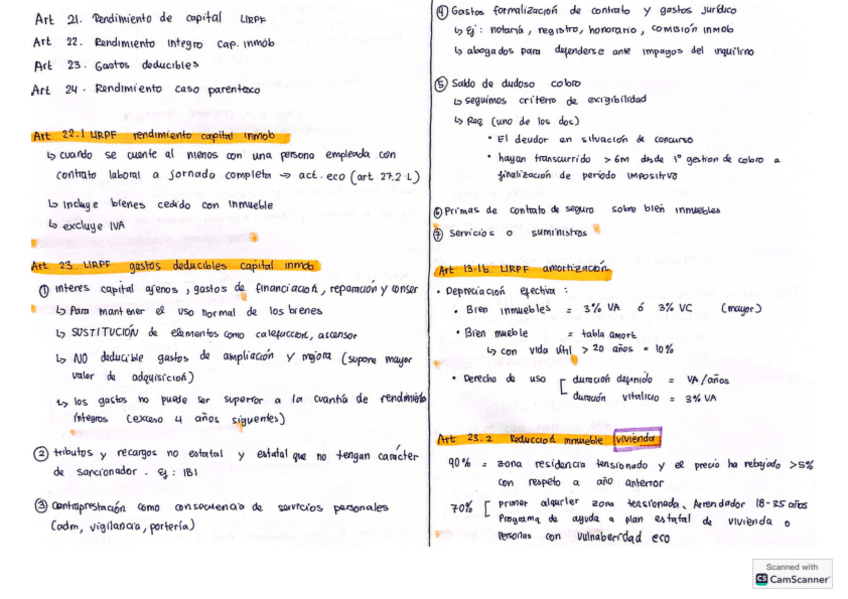 Art 21. Rendimiento de capital LIRPF
Art 22. Rendimiento integro cap. inmob
Art 23. Gastos deducibles
Art 24. Rendimiento caso parentesco
Art 22.1 LIRPF rendimiento capital inmob
↳ cuando se cuente al menos con una persona empleada con
contrato laboral a jornada completa → act. eco (art 27.2 L)
↳ Incluye bienes cedido con inmueble
↳ excluye IVA
Art 23 LIRPF gastos deducibles capital inmob
① interes capital ajenos, gastos de financiacion, reparación y conser
↳ Para mantener el uso normal de los bienes
↳ SUSTITUCIÓN de elementos como calefaccion, ascensor
↳ NO deducible gastos de ampliación y mejora (supone mayor
valor de adquisicion)
↳ los gastos no puede ser superior a la cuantia de rendimiento
integros (exceso 4 años siguentes)
② tributos y recargos no estatal y estatal que no tengan carácter
de sancionador. Ej: IBI
③ Contraprestación como consecuencia de servicios personales
(adm, vigilancia, portería)
④ Gastos formalización de contrato y gastos jurídico
↳ Ej: notaría, registro, honorario, comisión inmob
↳ abogados para defenderse ante impagos del inquilino
⑤ Saldo de dudoso cobro
↳ seguimos criterio de exigibilidad
↳ Req (uno de los dos)
• El deudor en situación de concurso
• hayan transcurrido > 6m desde 1º gestion de cobro a
finalización de período impositivo
⑥ Primas de contrato de seguro sobre bien inmuebles
⑦ Servicios o suministros
Art 13.1b LIRPF amortización
• Depreciación efectiva:
• Bien inmuebles = 3% VA ó 3% VC (mayor)
• Bien mueble = tabla amort
↳ con vida útil > 20 años = 10%
• Derecho de uso [ duracion definido = VA/años
duración vitalicio = 3% VA
Art 23.2 Reduccion inmueble vivienda
90% = zona residencia tensionado y el precio ha rebajado >5%
con respeto a año anterior
70% [ Primer alquiler zona tensionada, Arrendador 18-35 años
Programa de ayuda a plan estatal de vivienda o
Personas con vulnaberidad eco
Scanned with
CS CamScanner